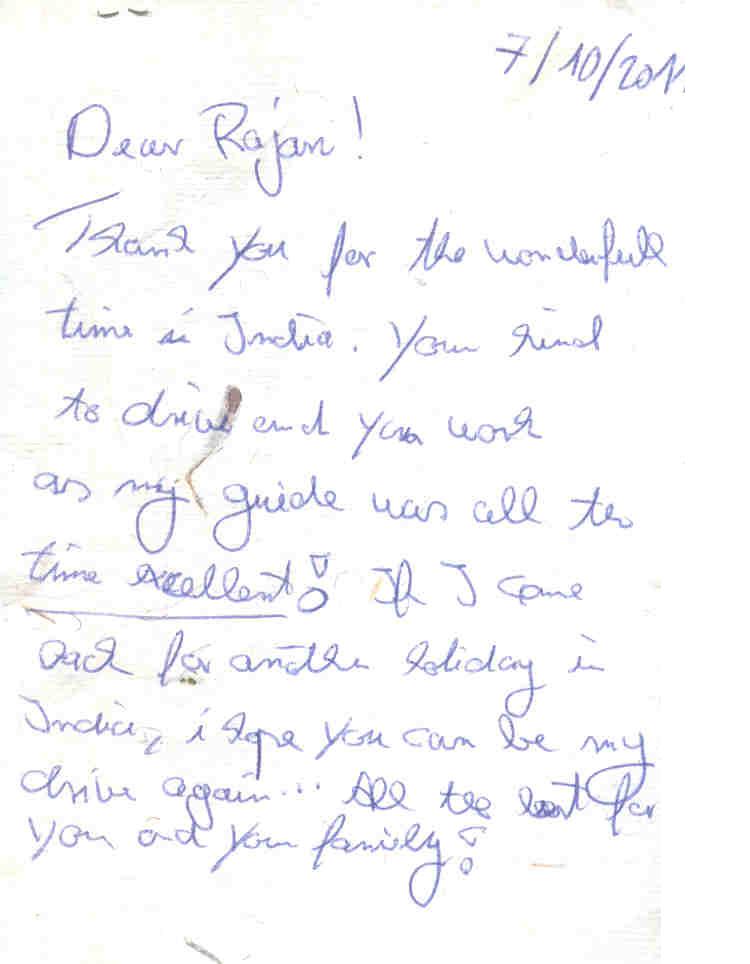 7/10/201
Dear Rajan!
Thank you for the wonderfull
time in India. Your kind
to drive and your work
as my guide was all the
time excellent! If I come
back for another holiday in
India, i hope you can be my
drive again... All the best for
you and your family!